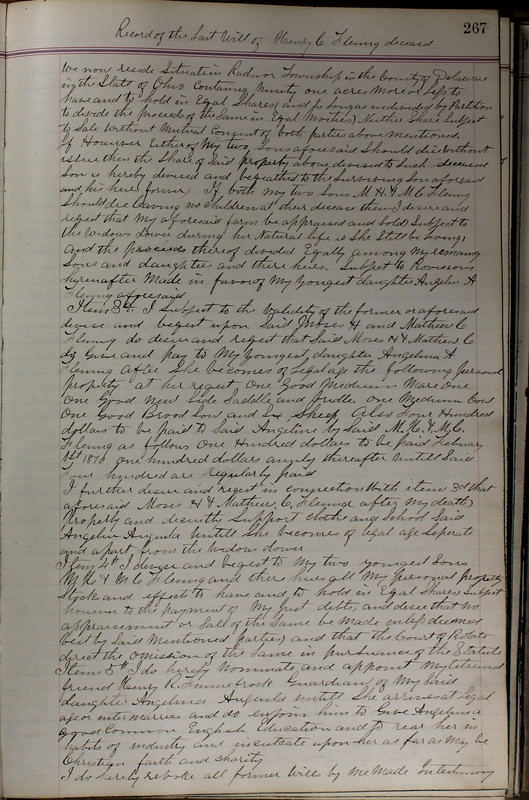 267
Record of the Last Will of Henry C Fleming deceased
We now reside Situate in Radnor Township in the County of Delaware
in the State of Ohio Containing Ninety one acres More or less to
have and to hold in Egal Shares (and so long as undivided by Partition
to divide the proceeds of the Same in Egal Moities) Neither Share Subject
to Sale Without Mutual Consent of both parties above Mentioned.
If However Either of My two Sons aforesaid Should die Without
issue then the Share of Said property above devised to Such deceased
Son is hereby devised and bequethed to the Surviving Son aforesaid
and his heirs forever If both my two Sons M. H. & M. C. Fleming
Should die leaving no Children at their decease then I desire and
reqest that My aforesaid farm be appraised and Sold Subject to
the Widows dower during her Natural life is She Still be living
and the proceeds thereof divided Egally among My remaing
Sons and daughters and there heirs. Subject to
hereinafter Made in favor of My Youngest daughter Angelin A
Fleming aforesaid
Item 3d. I Subject to the Validity of the former or aforesaid
devise and beqest upon Said Moses H and Mathew C
Fleming do desire and reqest that Said Moses H & Mathew C
do Give and pay to My Youngest daughter Angelina A
Fleming After She becomes of Legal age the following personal
property at her reqest, One Good Medium Mare One
One Good New Side Saddle and bridle. One Medium Cow
One Good Brood Sow and Six Sheep Also Four Hundred
dollars to be paid to Said Angeline by Said M. H. & M. C.
Fleming as follows One Hundred dollars to be paid Febuary
1st 1870 One hundred dollars annuly thereafter Untill Said
Four hundred are regularly paid
I further desire and reqest in connection With item 3d that
aforesaid Moses H & Mathew C, Fleming after My death
Properly and decently Support clothe and School Said
Angelin Angula Untill She becomes of legal age Seperate
and apart from the Widow dower
Item 4th I devise and beqest to My two youngest Sons
M H & M C Fleming and ther heirs all My personal property
Stock and effects to have and to hold in Egal Shares Subject
however to the payment of My just debts and desire that no
appraisement or Sale of the Same be Made unless deemed
best by Said Mentioned parties and that the Court of Probate
direct the Omission of the Same in pursuance of the Statute
Item 5th I do hereby Nominate and appoint My
friend Henry R. Guardian of My Said
daughter Angelina Angula untill She arrives at legal
age or intermarries and do enjoin him to Give Angelina a
good Common English Education and to rear her in
habits of industry and inculcate upon her as far as May be
Christian faith and charity
I do hereby revoke all former Will by me Made In testimony